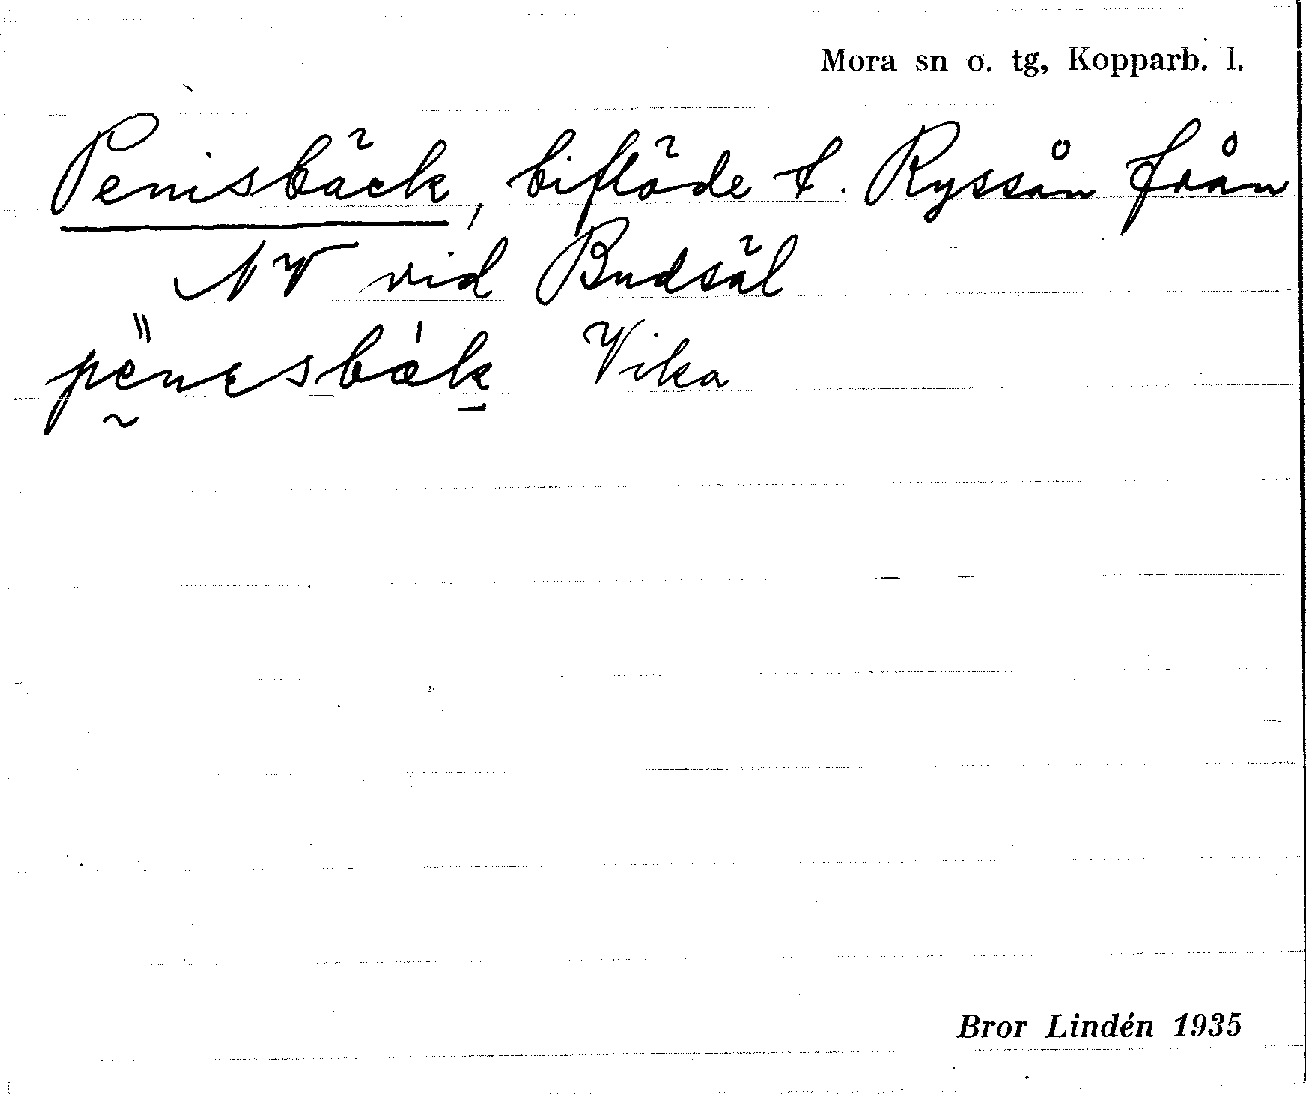 Mora sn o. tg, Kopparb. l.
Penisbäck, biflöde t. Ryssån från
NV vid Budsäl
pe̋nɛsbæ̀k Vika
Bror Lindén 1935